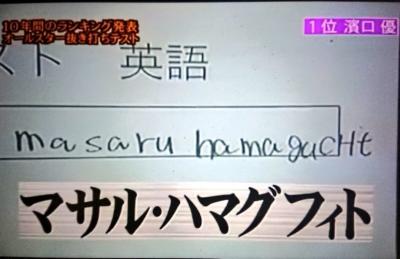 10年間のランキング発表
オールスター抜き打ちテスト
1位 濱口 優
スト 英語
masaru hamagucHt
マサル・ハマグフィト